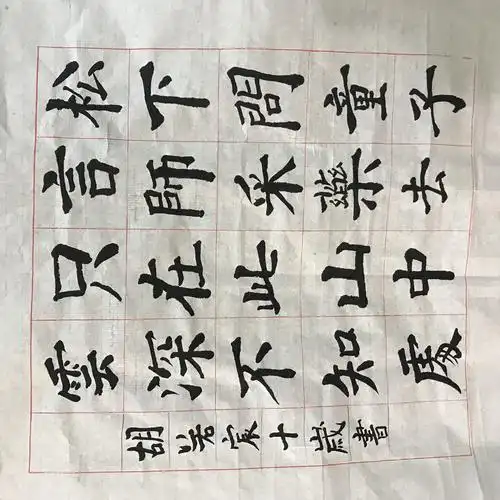 松下問童子
言師采藥去
只在此山中
雲深不知處
胡若宸十歲書